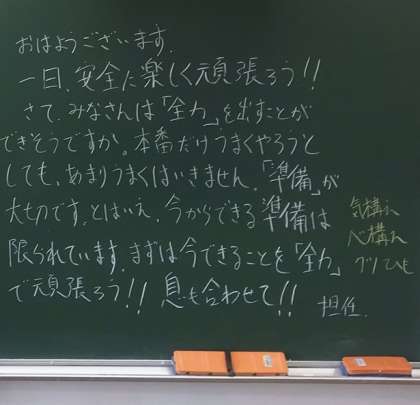 おはようございます.
一日、安全に楽しく頑張ろう!!
さて、みなさんは「全力」を出すことが
できそうですか。本番だけうまくやろうと
しても、あまりうまくはいきません。「準備」が
大切です。とはいえ、今からできる準備は
限られています。まずは今できることを「全力」
で頑張ろう!! 息も合わせて!!
担任.
気構え
心構え